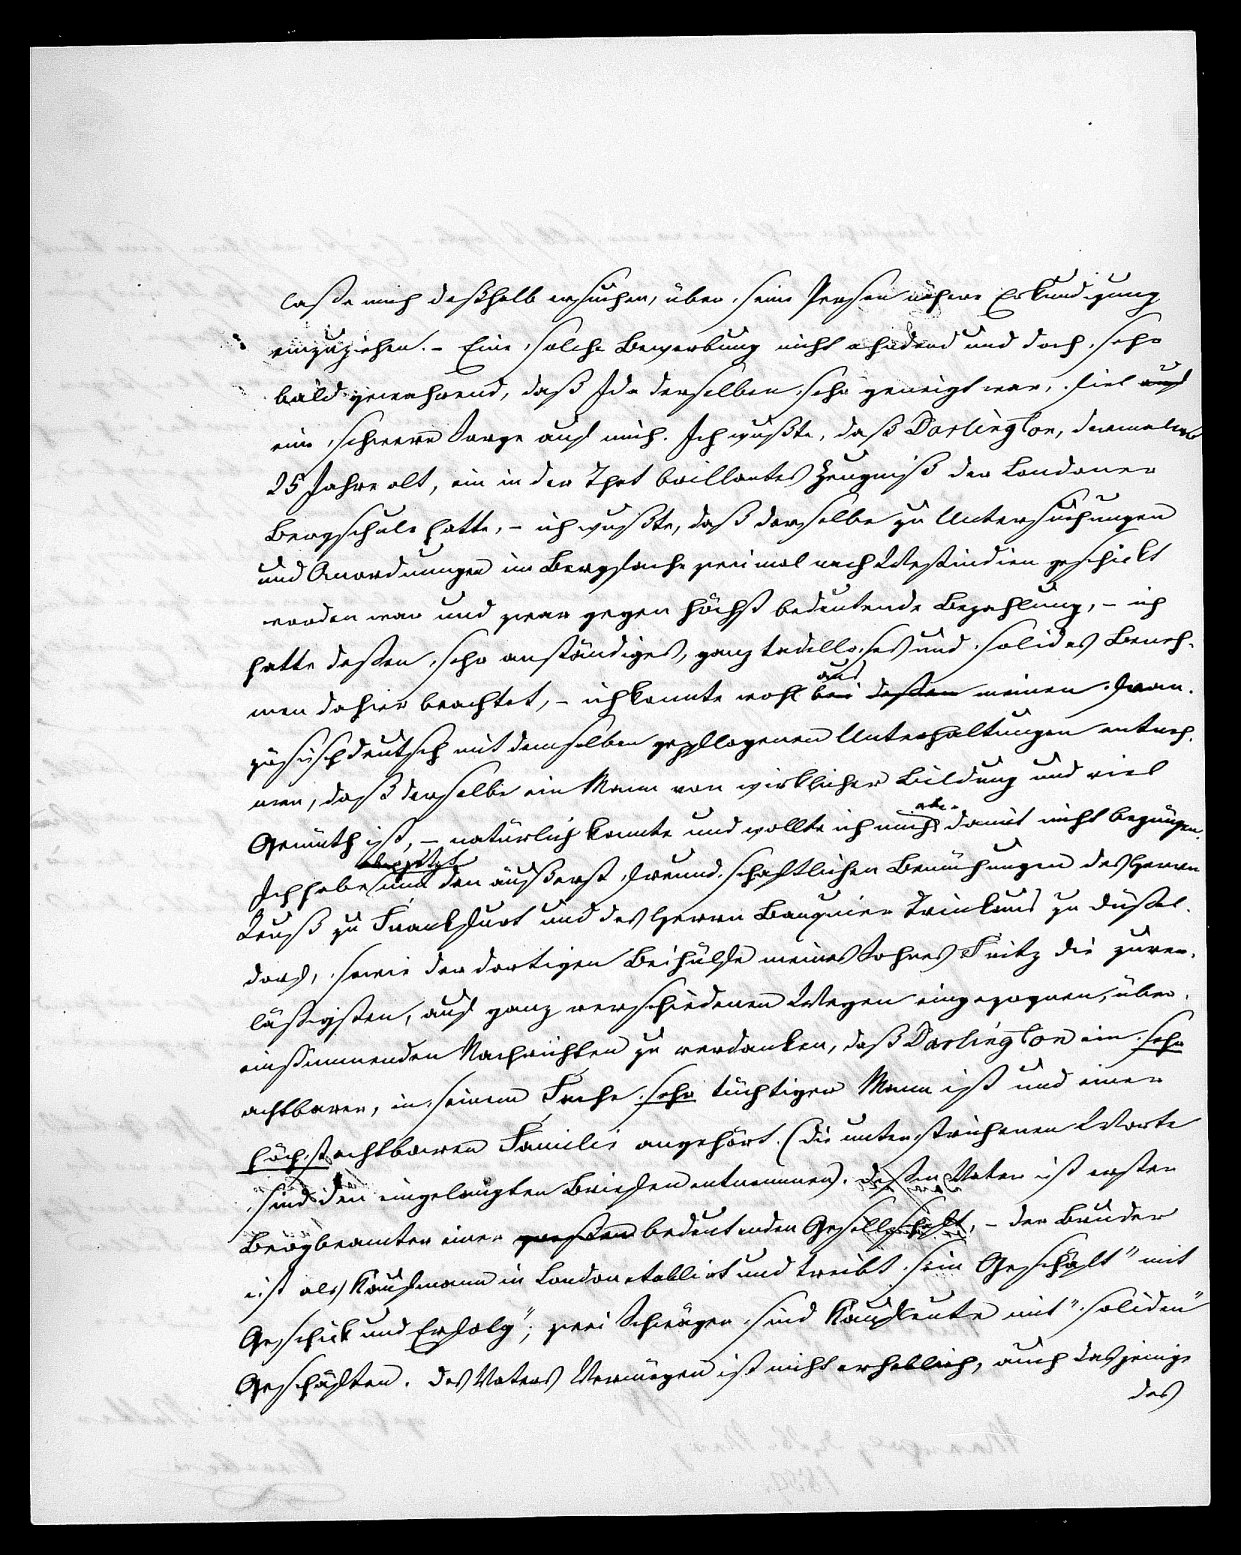 laße mich deßhalb ersuchen, über seine Person nähere Erkundigung
einzuziehen. – Eine solche Bewerbung nicht ahndend und doch sehr
bald gewahrend, daß Ida derselben sehr geneigt war, fiel auch
eine schwere Sorge auf mich. Ich wußte, daß Darlington, dermalen
25 Jahre alt, ein in der That brillantes Zeugniß der Londoner
Bergschule hatte, – ich wußte, daß derselbe zu Untersuchungen
und Anordnungen im Bergfache zweimal nach Westindien geschickt
worden war und zwar gegen höchst bedeutende Bezahlung, – ich
hatte deßen sehr anständiges, ganz tadelloses und solides Beneh-
men dahier beachtet, – ich konnte wohl bei deßen aus meinen fran-
zösischdeutsch mit demselben gepflogenen Unterhaltungen entneh-
men, daß derselbe ein Mann von wirklicher Bildung und viel
Gemüth ist, – natürlich konnte und wollte ich mich aber damit nicht begnügen.
Ich habe nun den äußerst freundschaftlichen Bemühungen des Herrn
Reuß zu Frankfurt und des Herrn Banquier Trinkaus zu Düßel-
dorf, sowie der dortigen Beihülfe meines Sohnes Fritz die zuver-
läßigsten, auf ganz verschiedenen Wegen eingezognen, über-
einstimmenden Nachrichten zu verdanken, daß Darlington ein sehr
achtbarer, in seinem Fache sehr tüchtiger Mann ist und einer
höchst achtbaren Familie angehört. (Die unterstrichenen Worte
sind den eingelangten Briefen entnommen). Deßen Vater ist erster
Bergbeamter einer großen bedeutenden Gesellschaft, – der Bruder
ist als Kaufmann in London etablirt und treibt sein Geschäft "mit
Geschick und Erfolg"; zwei Schwäger sind Kaufleute mit "soliden"
Geschäften. Des Vaters Vermögen ist nicht erheblich, auch dasjenige
des